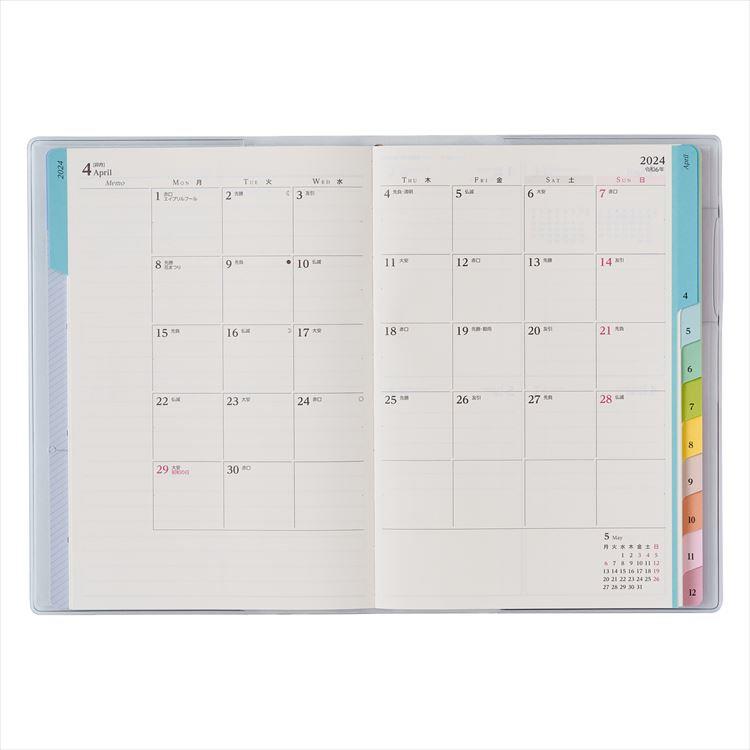 2024
4 [卯月]
April
Memo
MON 月
TUE 火
WED 水
1 赤口
エイプリルフール
2 先勝
3 友引
8 先勝
花まつり
9 先負
10 仏滅
15 先負
16 仏滅
17 大安
22 仏滅
23 大安
24 赤口
29 大安
昭和の日
30 赤口
2024
令和6年
April
THU 木
FRI 金
SAT 土
SUN 日
4 先負・清明
5 仏滅
6 大安
7 赤口
11 大安
12 赤口
13 先勝
14 友引
18 赤口
19 先勝・穀雨
20 友引
21 先負
25 先勝
26 友引
27 先負
28 仏滅
5 May
月 火 水 木 金 土 日
1 2 3 4 5
6 7 8 9 10 11 12
13 14 15 16 17 18 19
20 21 22 23 24 25 26
27 28 29 30 31
4
5
6
7
8
9
10
11
12